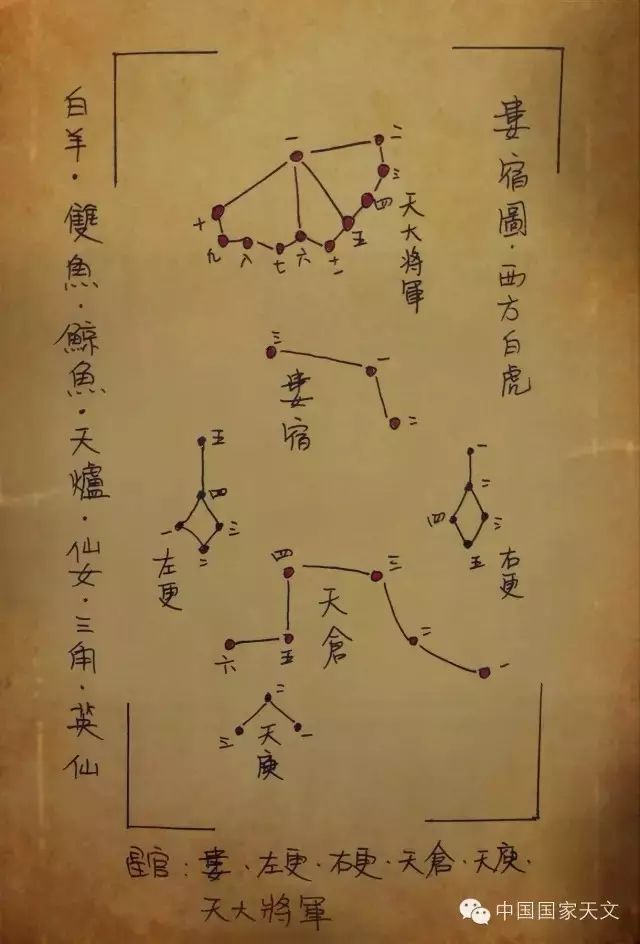 婁宿圖·西方白虎
一
二
三
四
五
十一
六
七
八
九
十
天大將軍
三
一
二
婁宿
五
四
一
三
二
左更
一
二
四
三
五
右更
四
三
二
一
五
六
天倉
二
三
一
天庾
白羊·雙魚·鯨魚·天爐·仙女·三角·英仙
星官：婁·左更·右更·天倉·天庾·
天大將軍
中国国家天文